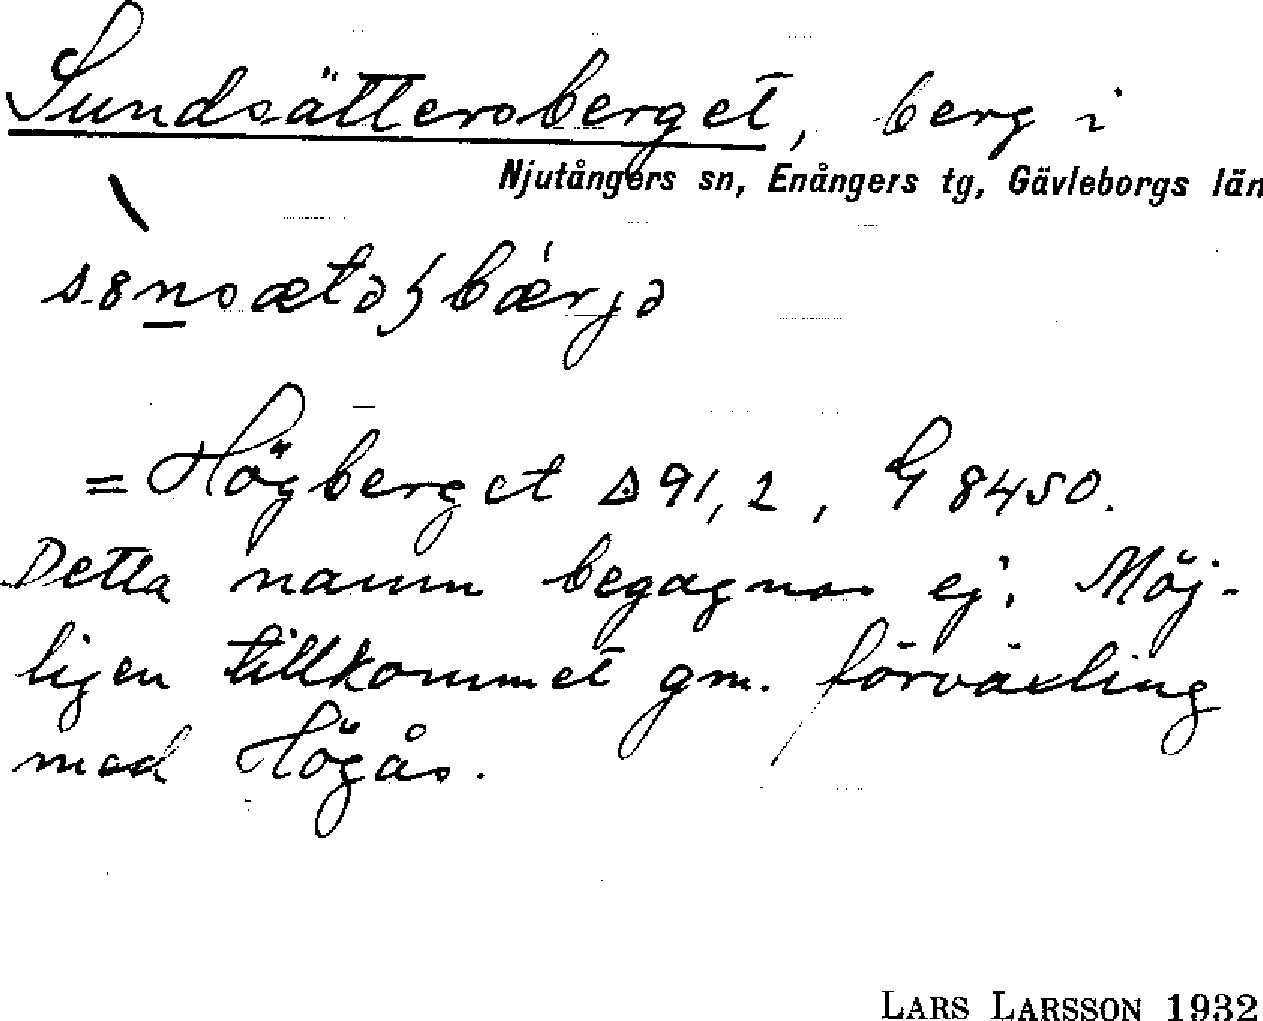 Sundsättersberget, berg i
Njutångers sn, Enångers tg, Gävleborgs län
= Högberget Δ 91,2, G 8450.
Detta namn begagnas ej. Möj-
ligen tillkommet gm. förväxling
med Högås.
LARS LARSSON 1932